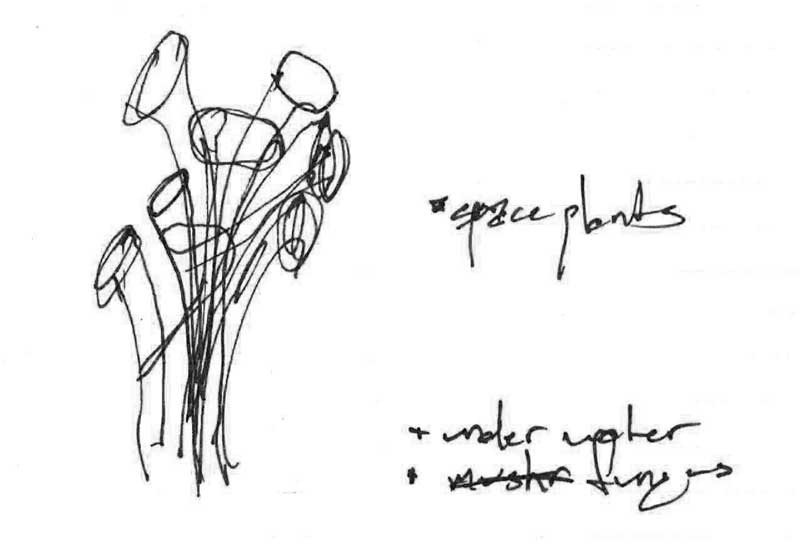 * space plants
+ under water
* mushr fungus